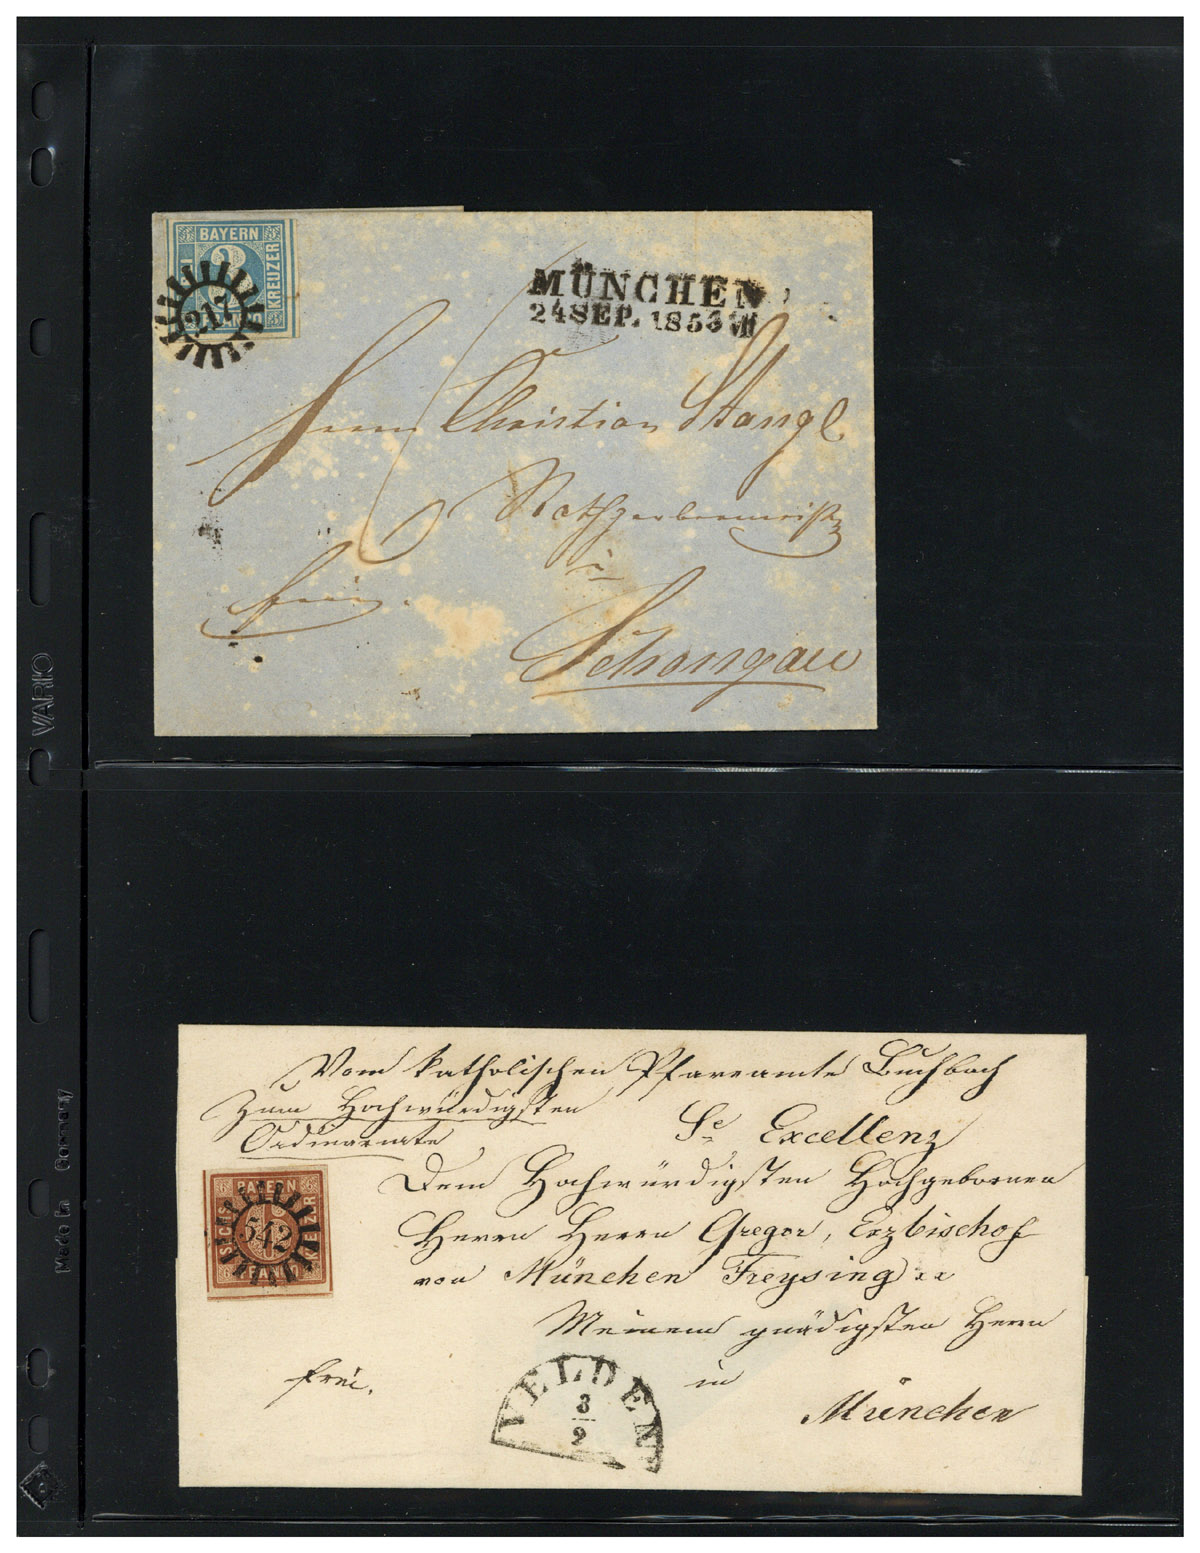 BAYERN
KREUZER
217
MÜNCHEN
24 SEP. 1853
Herrn Christian Stangl
Rothgerbermeister
in
frei.
Schongau
VARIO
Vom katholischen Pfarramte Buchbach
Zum Hochwürdigsten
Ordinariate
Se Excellenz
Dem Hochwürdigsten Hochgebornen
Herrn Herrn Gregor, Erzbischof
von München Freysing
Meinem gnädigsten Herrn
in
München
frei.
BAYERN
SECHS
KREUZER
542
VELDEN
3
2
Made in Germany